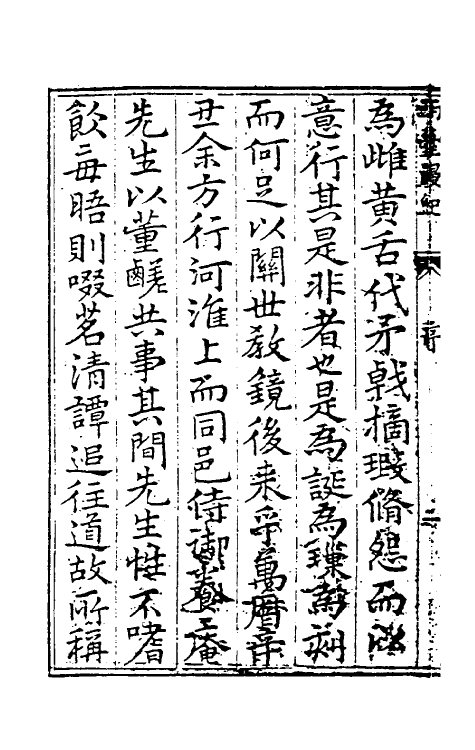 為雌黃舌代矛戟摘瑕脩怨而
意行其是非者也是為誕為
而何足以關世教鏡後来乎萬曆辛
丑余方行河淮上而同邑侍御龔庵
先生以董鹺共事其間先生性不嗜
飲每晤則啜茗清譚追往道故所稱
序